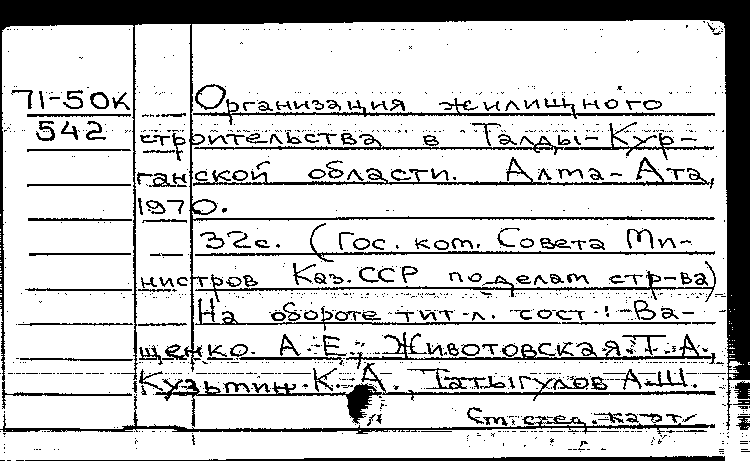 71-50к Организация жилищного
542 строительства в Талды-Кур-
ганской области. Алма-Ата,
1970.
32с. (Гос. ком. Совета Ми-
нистров Каз.ССР по делам стр-ва)
На обороте тит. л. сост.: Ва-
щенко. А. Е., Животовская. Т. А.,
Кузьмин. К. А., Татыгулов А.Ш.
См. след. карт.